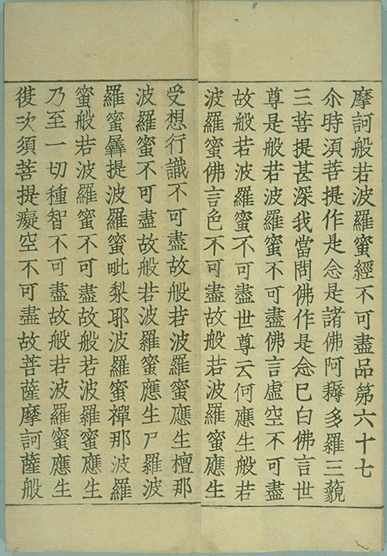 摩訶般若波羅蜜經不可盡品第六十七
尒時須菩提作是念是諸佛阿耨多羅三藐
三菩提甚深我當問佛作是念已白佛言世
尊是般若波羅蜜不可盡佛言虛空不可盡
故般若波羅蜜不可盡世尊云何應生般若
波羅蜜佛言色不可盡故般若波羅蜜應生
受想行識不可盡故般若波羅蜜應生檀那
波羅蜜不可盡故般若波羅蜜應生尸羅波
羅蜜羼提波羅蜜毗梨耶波羅蜜禪那波羅
蜜般若波羅蜜不可盡故般若波羅蜜應生
乃至一切種智不可盡故般若波羅蜜應生
復次須菩提癡空不可盡故菩薩摩訶薩般